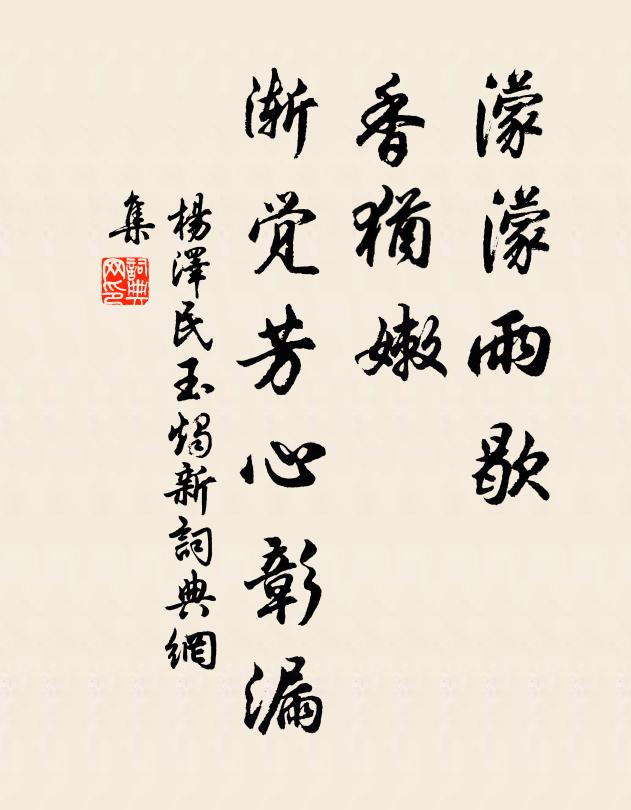 濛濛雨歇
香猶嫩
漸觉芳心彰漏
楊澤民玉燭新詞典網
集
詞典
网印